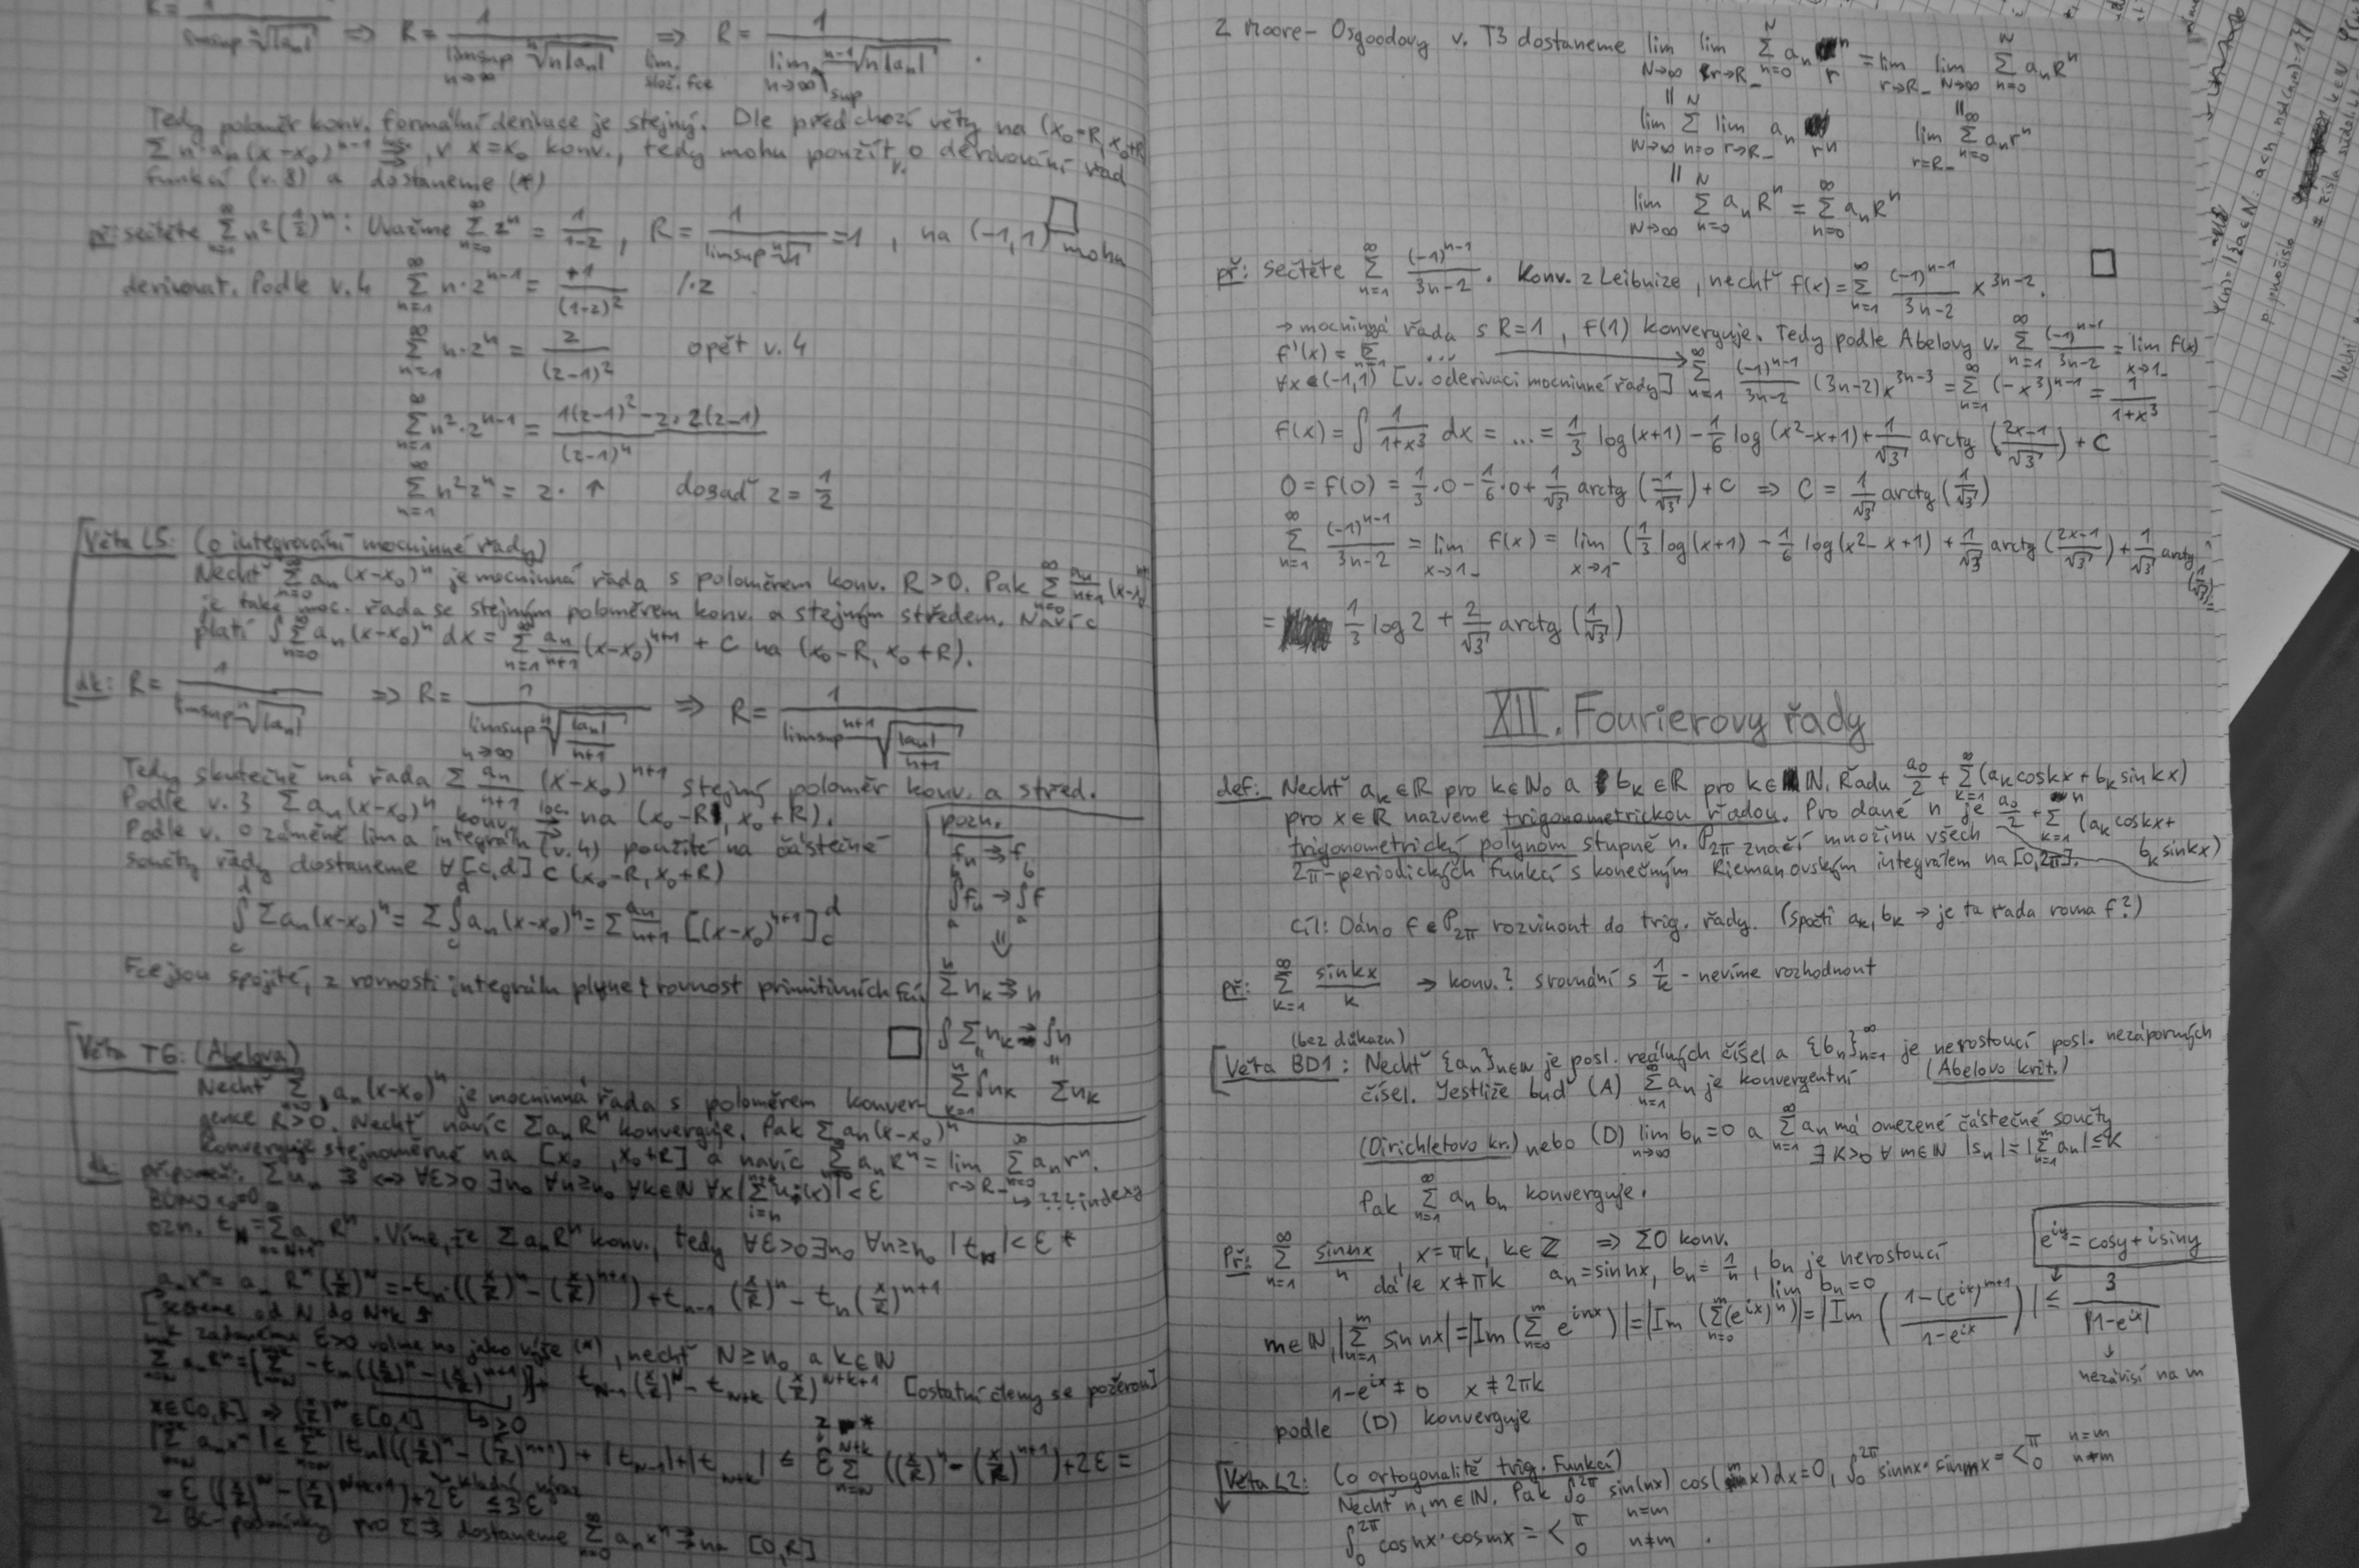 R = 1/(limsup ⁿ√|aₙ|) ⇒ R = 1/(limsup_{n→∞} ⁿ√(n|aₙ|)) ⇒ (lim. slož. fce) R = 1/(limsup_{n→∞} ⁿ⁻¹√(n|aₙ|)) .
Tedy poloměr konv. formální derivace je stejný. Dle předchozí věty na (x₀-R, x₀+R)
Σ n·aₙ(x-x₀)ⁿ⁻¹ ⇉, v x=x₀ konv., tedy mohu použít v. o derivování řad
funkcí (v. 8) a dostaneme (*)
□
př: sečtěte Σ_{n=1}^∞ n²(1/2)ⁿ: Uvažme Σ_{n=0}^∞ zⁿ = 1/(1-z), R = 1/(limsup ⁿ√1) = 1, na (-1,1) mohu
derivovat. Podle v. 4 Σ_{n=1}^∞ n·zⁿ⁻¹ = +1/(1-z)² /·z
Σ_{n=1}^∞ n·zⁿ = z/(z-1)² opět v. 4
Σ_{n=1}^∞ n²·zⁿ⁻¹ = (1(z-1)² - z·2(z-1))/(z-1)⁴
Σ_{n=1}^∞ n²zⁿ = z·↑ dosaď z = 1/2
Věta L5: (o integrování mocninné řady)
Nechť Σ_{n=0}^∞ aₙ(x-x₀)ⁿ je mocninná řada s poloměrem konv. R>0. Pak Σ_{n=0}^∞ aₙ/(n+1) (x-x₀)ⁿ⁺¹
je také moc. řada se stejným poloměrem konv. a stejným středem. Navíc
platí ∫Σ_{n=0}^∞ aₙ(x-x₀)ⁿ dx = Σ_{n=1}^∞ aₙ/(n+1) (x-x₀)ⁿ⁺¹ + C na (x₀-R, x₀+R).
dk: R = 1/(limsup ⁿ√|aₙ|) ⇒ R = 1/(limsup_{n→∞} ⁿ√(|aₙ|/(n+1))) ⇒ R = 1/(limsup ⁿ⁺¹√(|aₙ|/(n+1)))
Tedy skutečně má řada Σ aₙ/(n+1) (x-x₀)ⁿ⁺¹ stejný poloměr konv. a střed.
Podle v. 3 Σaₙ(x-x₀)ⁿ konv. loc. ⇉ na (x₀-R, x₀+R).
Podle v. o záměně lim a integrálu (v. 4) použité na částečné
součty řady dostaneme ∀[c,d]⊂(x₀-R, x₀+R)
∫_c^d Σaₙ(x-x₀)ⁿ = Σ∫_c^d aₙ(x-x₀)ⁿ = Σ aₙ/(n+1) [(x-x₀)ⁿ⁺¹]_c^d
Fce jsou spojité, z rovnosti integrálu plyne i rovnost primitivních fcí.
□
pozn.
fₙ ⇉ f
∫_a^b fₙ → ∫_a^b f
⇓
Σⁿ u_k ⇉ u
∫Σ u_k → ∫u
Σ_{k=1}^n ∫u_k Σu_k
Věta T6: (Abelova)
Nechť Σ_{n=0}^∞ aₙ(x-x₀)ⁿ je mocninná řada s poloměrem konver-
gence R>0. Nechť navíc ΣaₙRⁿ konverguje. Pak Σaₙ(x-x₀)ⁿ
konverguje stejnoměrně na [x₀, x₀+R] a navíc Σ_{n=0}^∞ aₙRⁿ = lim_{r→R₋} Σ_{n=0}^∞ aₙrⁿ.
↳ ???indexy
dk: připomeň. Σuₙ ⇉ ⇔ ∀ε>0 ∃n₀ ∀n≥n₀ ∀k∈ℕ ∀x |Σ_{i=n}^{n+k} uᵢ(x)| < ε
BÚNO x₀=0
ozn. t_N = Σ_{n=N+1}^∞ aₙRⁿ. Víme, že ΣaₙRⁿ konv., tedy ∀ε>0 ∃n₀ ∀n≥n₀ |tₙ| < ε *
aₙxⁿ = aₙRⁿ(x/R)ⁿ = -tₙ·((x/R)ⁿ - (x/R)ⁿ⁺¹) + tₙ₋₁(x/R)ⁿ - tₙ(x/R)ⁿ⁺¹
sečteme od N do N+k
k zadanému ε>0 volme n₀ jako výše (*), nechť N≥n₀ a k∈ℕ
t_{N-1}(x/R)^N - t_{N+k}(x/R)^{N+k+1} [ostatní členy se požerou]
x∈[0,R] ⇒ (x/R)ⁿ∈[0,1] ↳ ≥0
z *
|Σ aₙxⁿ| ≤ Σ |tₙ|((x/R)ⁿ - (x/R)ⁿ⁺¹) + |t_{N-1}| + |t_{N+k}| ≤ ε Σ_{n=N}^{N+k} ((x/R)ⁿ - (x/R)ⁿ⁺¹) + 2ε =
= ε((x/R)^N - (x/R)^{N+k+1}) + 2ε ≤ 3ε
Z BC-podmínky pro Σ⇉ dostaneme Σ_{n=0}^∞ aₙxⁿ ⇉ na [0,R]
Z Moore-Osgoodovy v. T3 dostaneme lim_{N→∞} lim_{r→R₋} Σ_{n=0}^N aₙrⁿ = lim_{r→R₋} lim_{N→∞} Σ_{n=0}^N aₙRⁿ
|| ||
lim_{N→∞} Σ_{n=0}^N lim_{r→R₋} aₙrⁿ lim_{r=R₋} Σ_{n=0}^∞ aₙrⁿ
||
lim_{N→∞} Σ_{n=0}^N aₙRⁿ = Σ_{n=0}^∞ aₙRⁿ
□
př: sečtěte Σ_{n=1}^∞ (-1)ⁿ⁻¹/(3n-2). Konv. z Leibnize, nechť f(x) = Σ_{n=1}^∞ (-1)ⁿ⁻¹/(3n-2) x³ⁿ⁻².
→ mocninná řada s R=1, f(1) konverguje. Tedy podle Abelovy v. Σ_{n=1}^∞ (-1)ⁿ⁻¹/(3n-2) = lim_{x→1₋} f(x)
f'(x) = Σ_{n=1}^∞ ...
∀x∈(-1,1) [v. o derivaci mocninné řady] Σ_{n=1}^∞ (-1)ⁿ⁻¹/(3n-2) (3n-2)x³ⁿ⁻³ = Σ_{n=1}^∞ (-x³)ⁿ⁻¹ = 1/(1+x³)
f(x) = ∫ 1/(1+x³) dx = ... = 1/3 log(x+1) - 1/6 log(x²-x+1) + 1/√3 arctg((2x-1)/√3) + C
0 = f(0) = 1/3·0 - 1/6·0 + 1/√3 arctg(-1/√3) + C ⇒ C = 1/√3 arctg(1/√3)
Σ_{n=1}^∞ (-1)ⁿ⁻¹/(3n-2) = lim_{x→1₋} f(x) = lim_{x→1⁻} (1/3 log(x+1) - 1/6 log(x²-x+1) + 1/√3 arctg((2x-1)/√3) + 1/√3 arctg(1/√3)) =
= 1/3 log2 + 2/√3 arctg(1/√3)
XII. Fourierovy řady
def: Nechť a_k∈ℝ pro k∈ℕ₀ a b_k∈ℝ pro k∈ℕ. Řadu a₀/2 + Σ_{k=1}^∞ (a_k coskx + b_k sinkx)
pro x∈ℝ nazveme trigonometrickou řadou. Pro dané n je a₀/2 + Σ_{k=1}^n (a_k coskx + b_k sinkx)
trigonometrický polynom stupně n. P₂π značí množinu všech
2π-periodických funkcí s konečným Riemanovským integrálem na [0,2π].
Cíl: Dáno f∈P₂π rozvinout do trig. řady. (spočti a_k, b_k → je ta řada rovna f?)
př: Σ_{k=1}^∞ sinkx/k → konv.? srovnání s 1/k - nevíme rozhodnout
(bez důkazu)
Věta BD1: Nechť {aₙ}_{n∈ℕ} je posl. reálných čísel a {bₙ}_{n=1}^∞ je nerostoucí posl. nezáporných
čísel. Jestliže buď (A) Σ_{n=1}^∞ aₙ je konvergentní (Abelovo krit.)
(Dirichletovo kr.) nebo (D) lim_{n→∞} bₙ=0 a Σ_{n=1}^∞ aₙ má omezené částečné součty
∃K>0 ∀m∈ℕ |sₙ| = |Σ_{n=1}^m aₙ| ≤ K
Pak Σ_{n=1}^∞ aₙbₙ konverguje.
Př: Σ_{n=1}^∞ sinnx/n, x=πk, k∈ℤ ⇒ Σ0 konv.
e^{iy} = cosy + isiny
dále x≠πk aₙ=sinnx, bₙ=1/n, bₙ je nerostoucí
lim bₙ=0
m∈ℕ, |Σ_{n=1}^m sin nx| = |Im(Σ_{n=0}^m e^{inx})| = |Im(Σ_{n=0}^m (e^{ix})ⁿ)| = |Im((1-(e^{ix})^{m+1})/(1-e^{ix}))| ≤ 3/|1-e^{ix}|
↓
nezávisí na m
1-e^{ix}≠0 x≠2πk
podle (D) konverguje
Věta L2: (o ortogonalitě trig. funkcí)
Nechť n,m∈ℕ. Pak ∫₀^{2π} sin(nx) cos(mx)dx=0, ∫₀^{2π} sinnx·sinmx = < π n=m, 0 n≠m
∫₀^{2π} cosnx·cosmx = < π n=m, 0 n≠m .